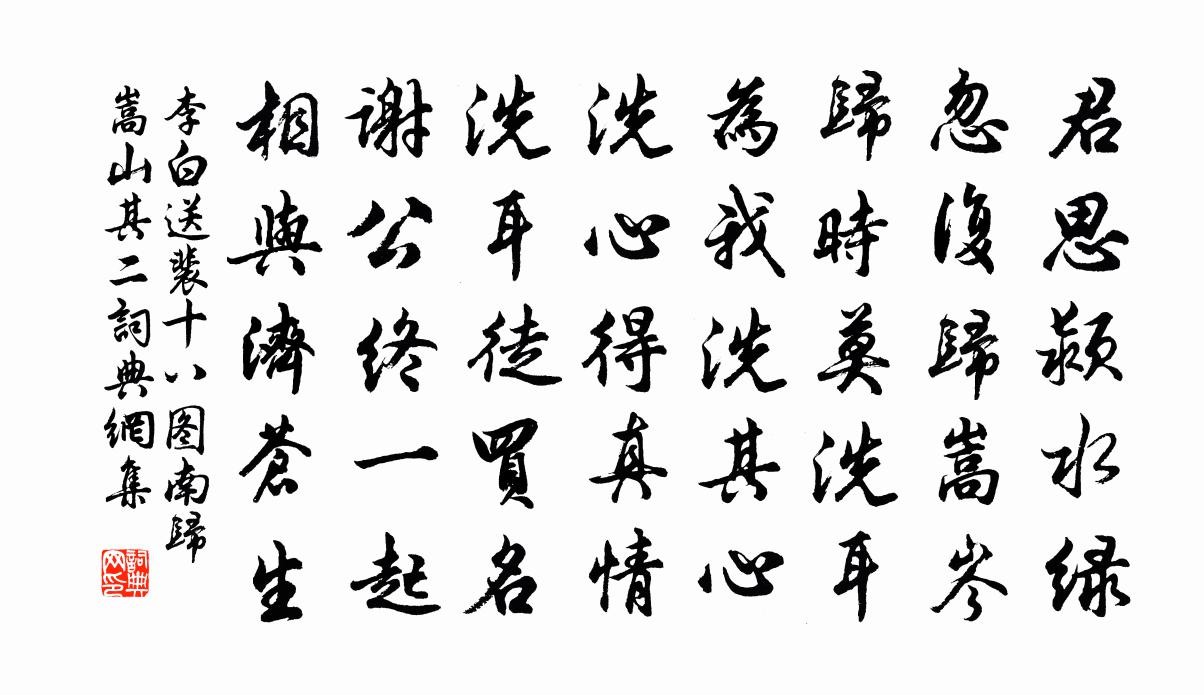 君思颍水緑
忽復歸嵩岑
歸時莫洗耳
為我洗其心
洗心得真情
洗耳徒買名
謝公終一起
相與濟蒼生
李白送裴十八图南歸
嵩山其二詞典網集
詞典网印